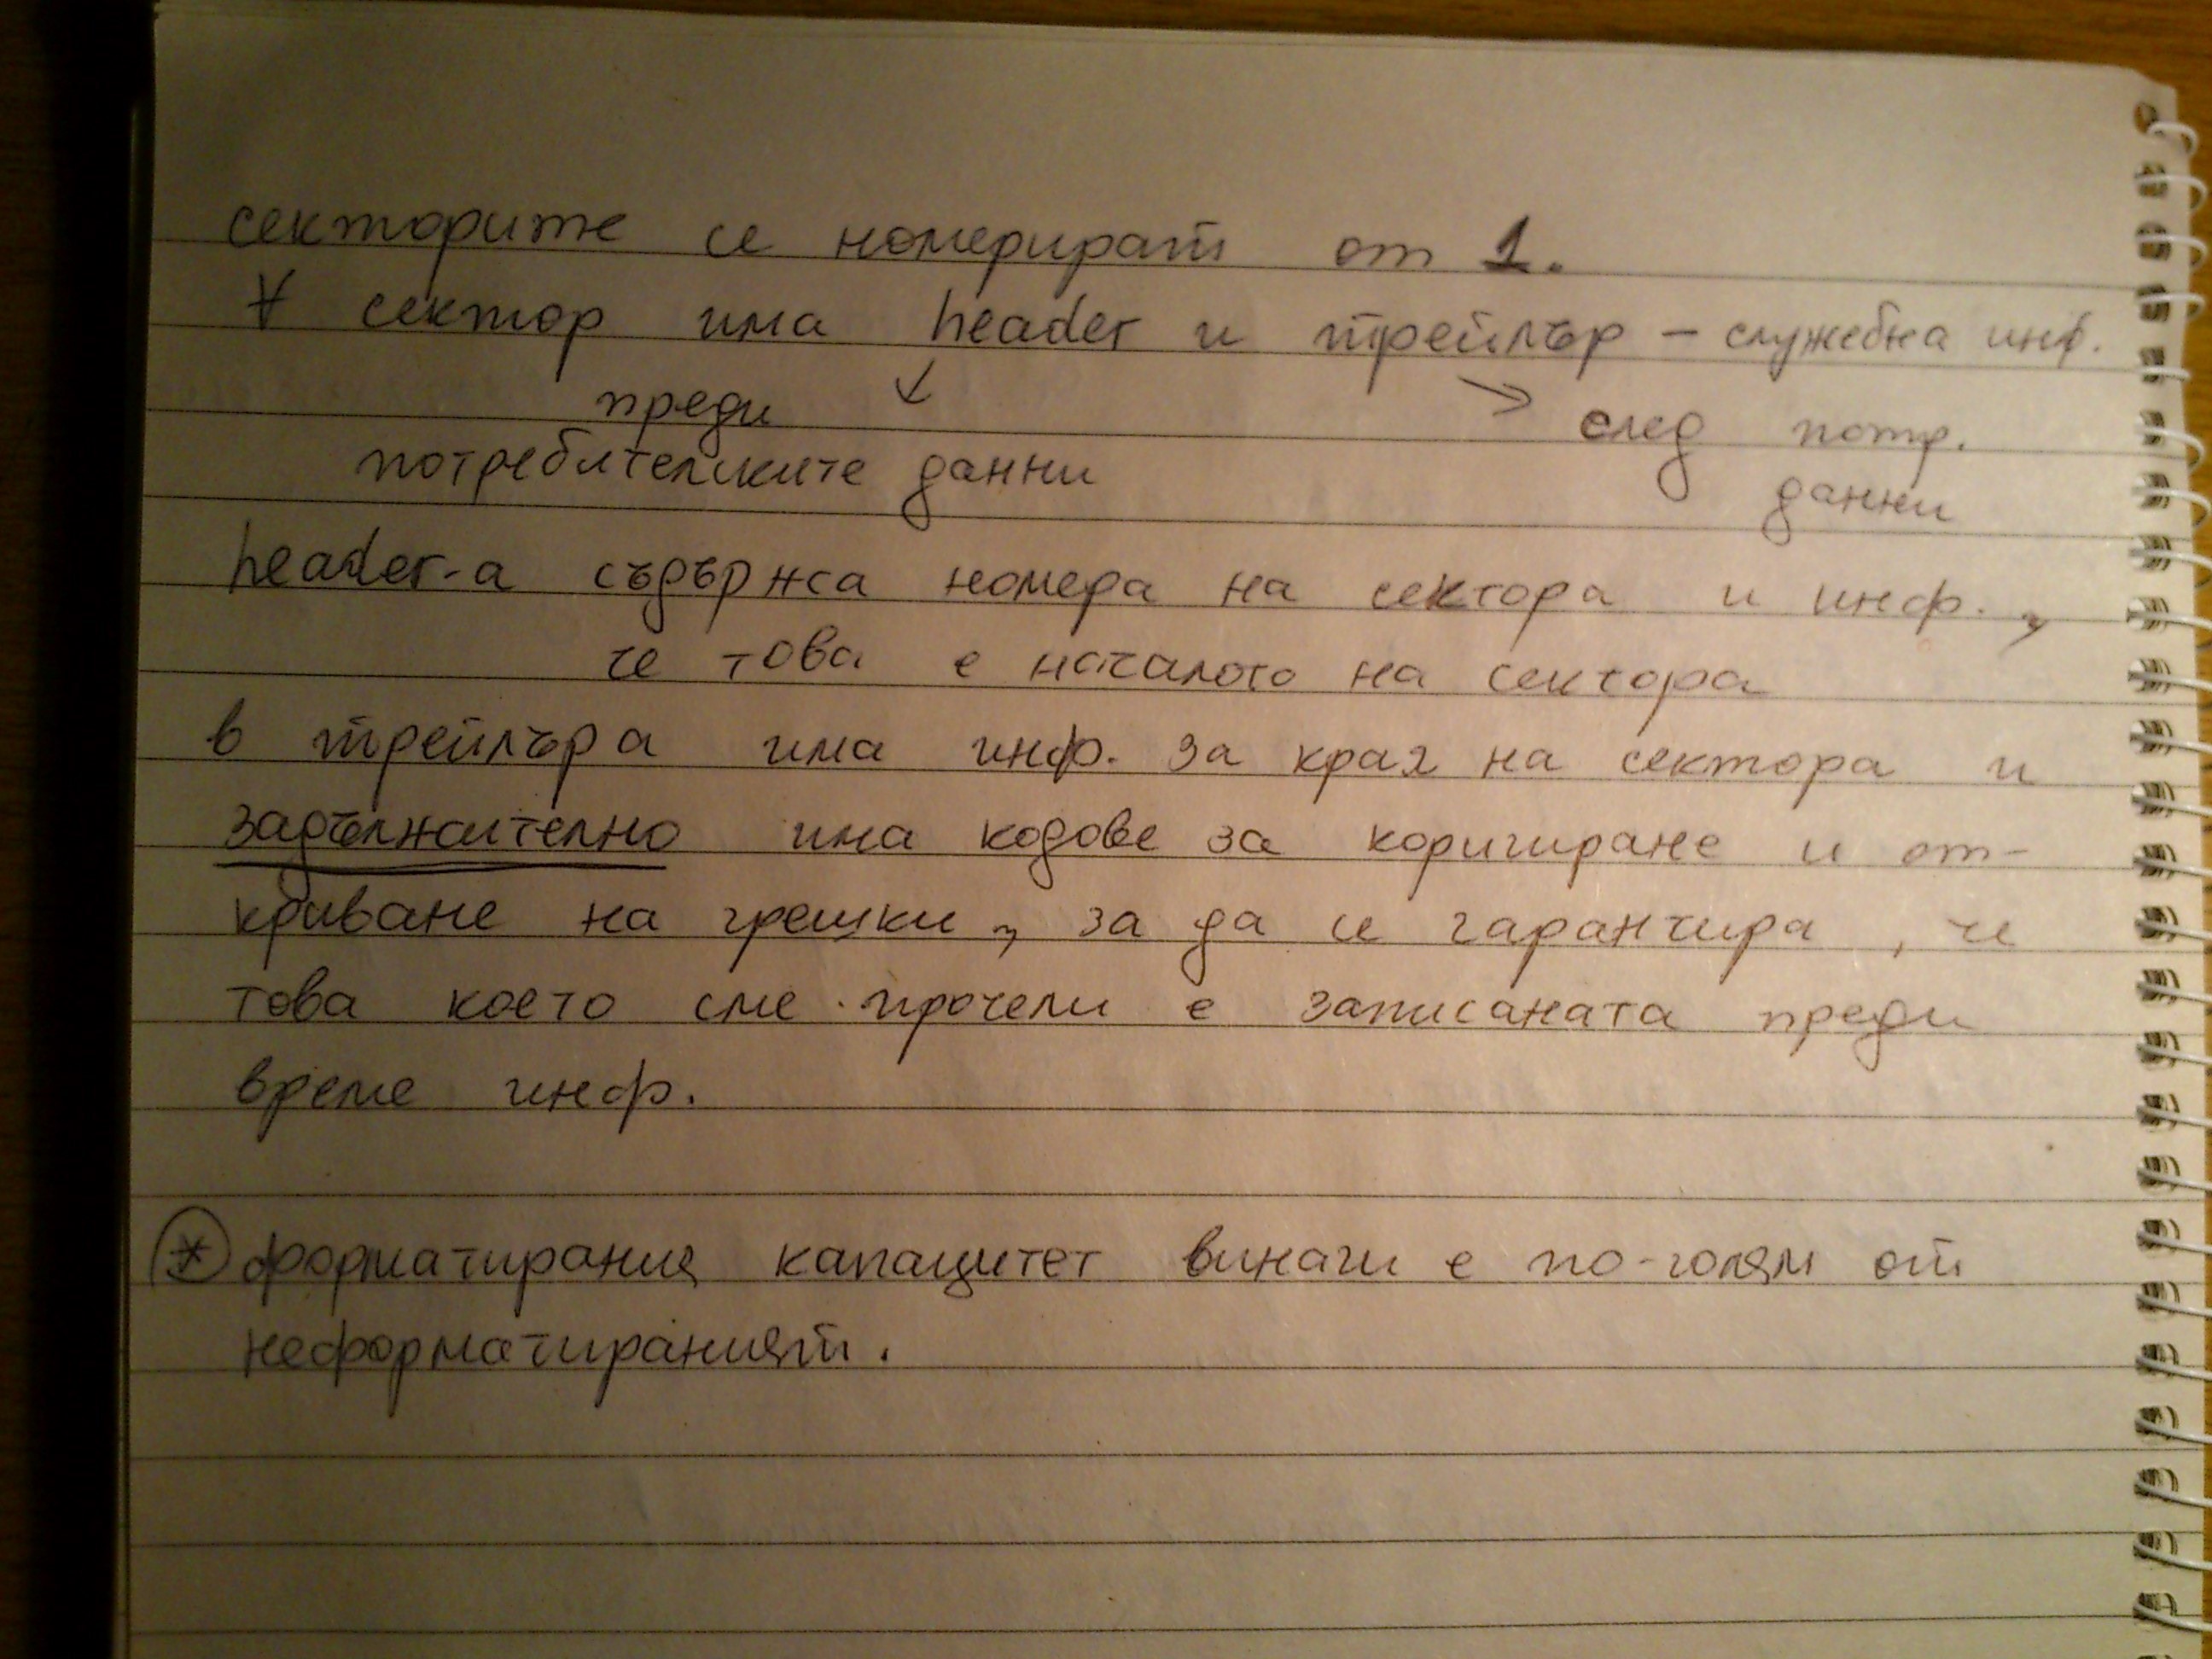 секторите се номерират от 1.
∀ сектор има header и трейлър – служебна инф.
преди ↙ ↘ след потр.
потребителските данни данни
header-а съдържа номера на сектора и инф.,
че това е началото на сектора
в трейлъра има инф. за края на сектора и
задължително има кодове за коригиране и от-
криване на грешки, за да се гарантира, че
това което сме прочели е записаната преди
време инф.
* форматирания капацитет винаги е по-голям от
неформатираният.